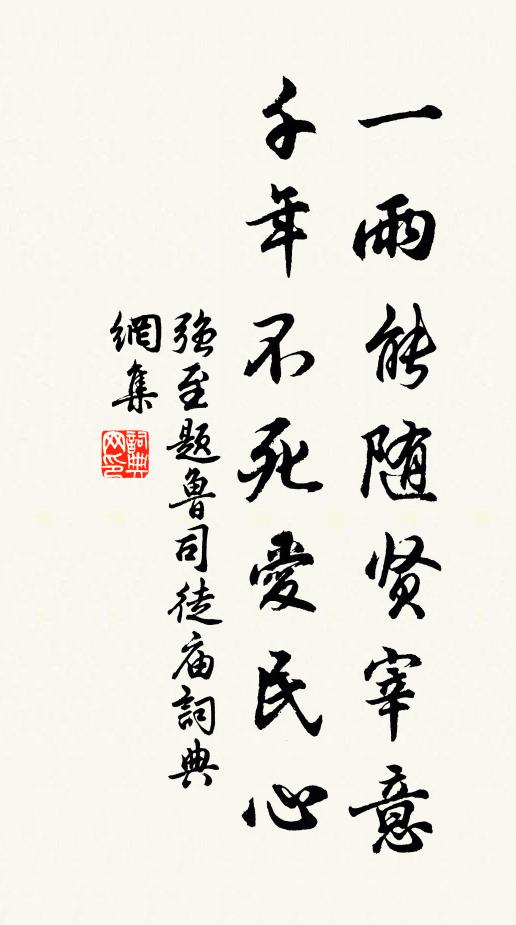 一雨能随贤宰意
千年不死愛民心
強至题魯司徒庙詞典
網集
詞典
网印